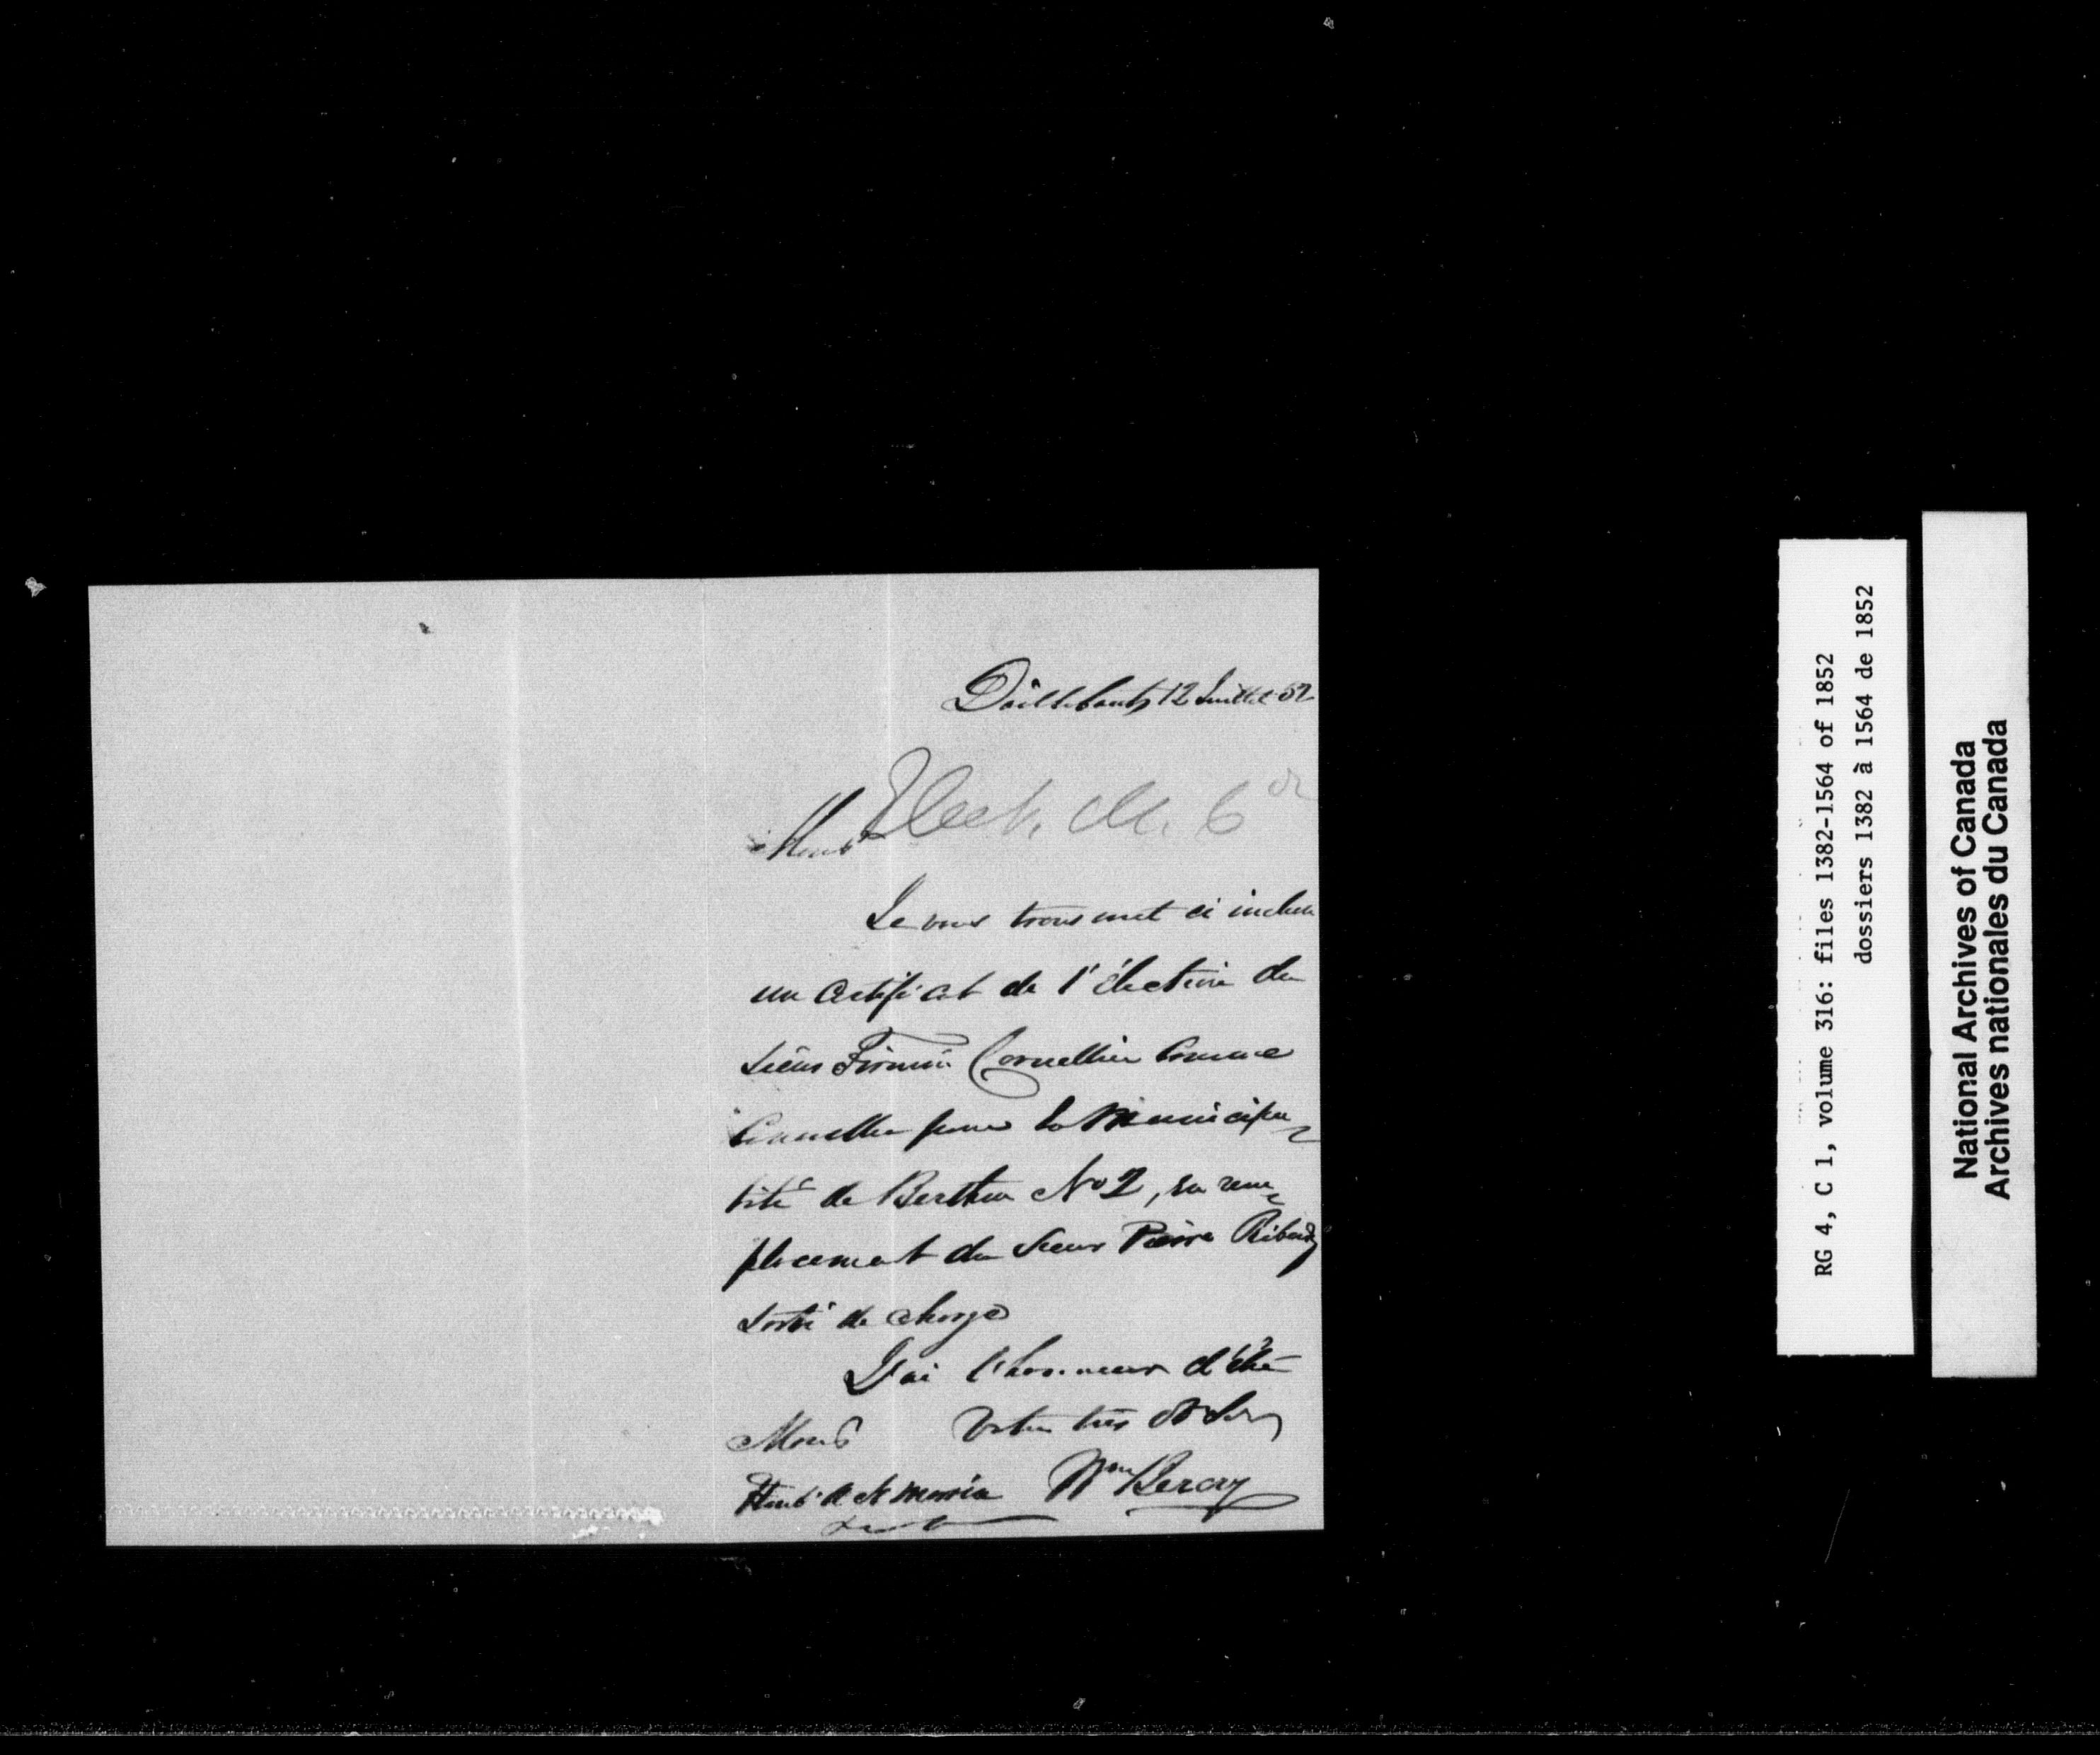 Daillebout 12 Juillet 52
Elect. M. C<sup>or</sup>
Monsr
Je vous transmet ci inclus
un certificat de l'élection du
Sieur Firmin Cornellier comme
Conseller pour la Municipa
lité de Berthier No 2, en rem
placement du Sieur Pierre Ribardy
sorti de charge
J'ai l'honneur d'être
Monsr Votre très Ob Ser
Honb. A N Morin Wm Berczy
RG 4, C 1, volume 316: files 1382-1564 of 1852
dossiers 1382 à 1564 de 1852
National Archives of Canada
Archives nationales du Canada